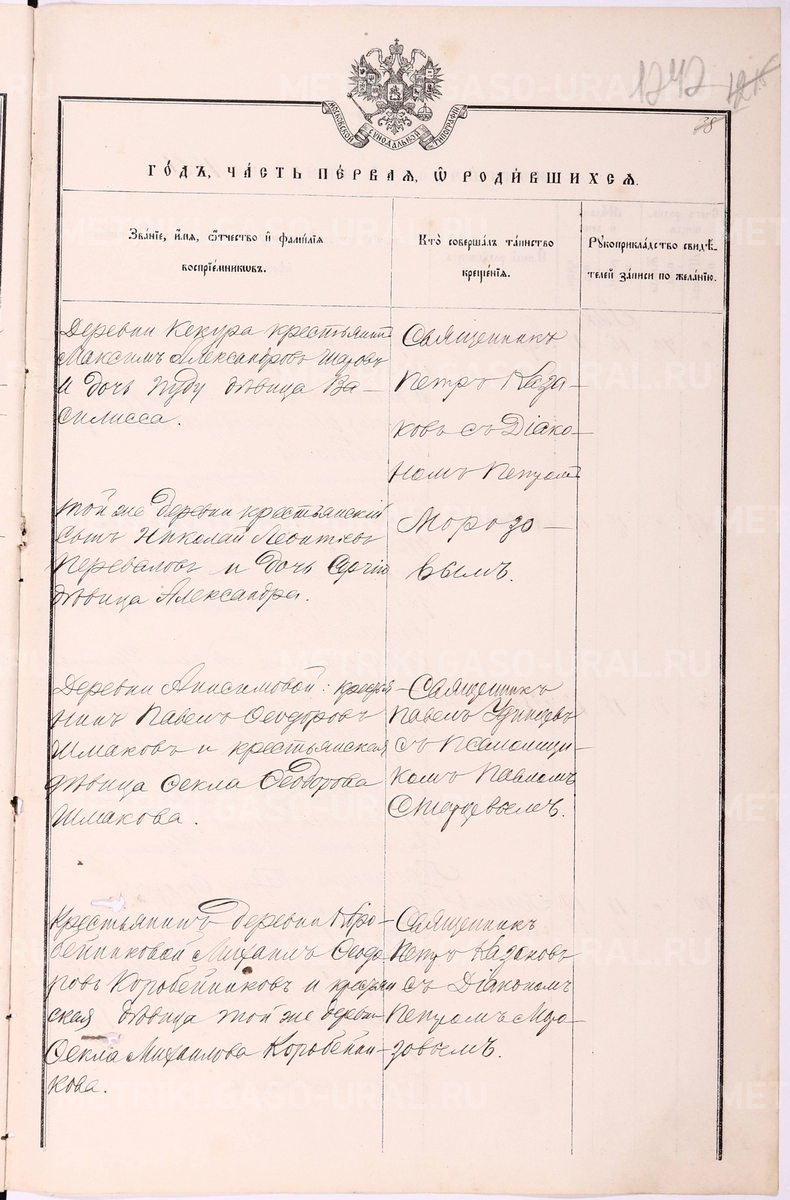 1242
38
МОСКОВСКОЙ СѴНОДАЛЬНОЙ ТИПОГРАФІИ
ГО́ДЪ, ЧА́СТЬ ПЕ́РВАЯ, Ѿ РОДИ́ВШИХСЯ.
Зва́нїе, и́мя, ѻ҆́тчество и҆ фами́лїя
воспрїе́мникѡвъ.
Кто̀ соверша́лъ та́инство
креще́нїя.
Рꙋкоприкла́дство свидѣ́-
телей за́писи по жела́нїю.
Деревни Кекура крестьянинъ
Максимъ Александровъ
и дочь дѣвица Ва-
силисса.
Священникъ
Петръ Каза-
ковъ съ Діако-
номъ Петромъ
Морозо-
вымъ.
Той же деревни крестьянскій
сынъ Николай Леонтьевъ
Переваловъ и дочь
дѣвица Александра.
Деревни Анисимовой: кресть
нинъ Павелъ Ѳеодоровъ
Шмаковъ и крестьянская
дѣвица Ѳекла Ѳеодорова
Шмакова.
Священникъ
Павелъ Удинцевъ
съ Псаломщи-
комъ Павломъ
Крестьянинъ деревни Коро-
бейниковой Михаилъ Ѳеодо-
ровъ Коробейниковъ и крестьян
ская дѣвица той же деревни
Ѳекла Михаилова Коробейни-
кова.
Священникъ
Петръ Казаковъ
съ Діакономъ
Петромъ Моро-
зовымъ.
METRIKI.GASO-URAL.RU